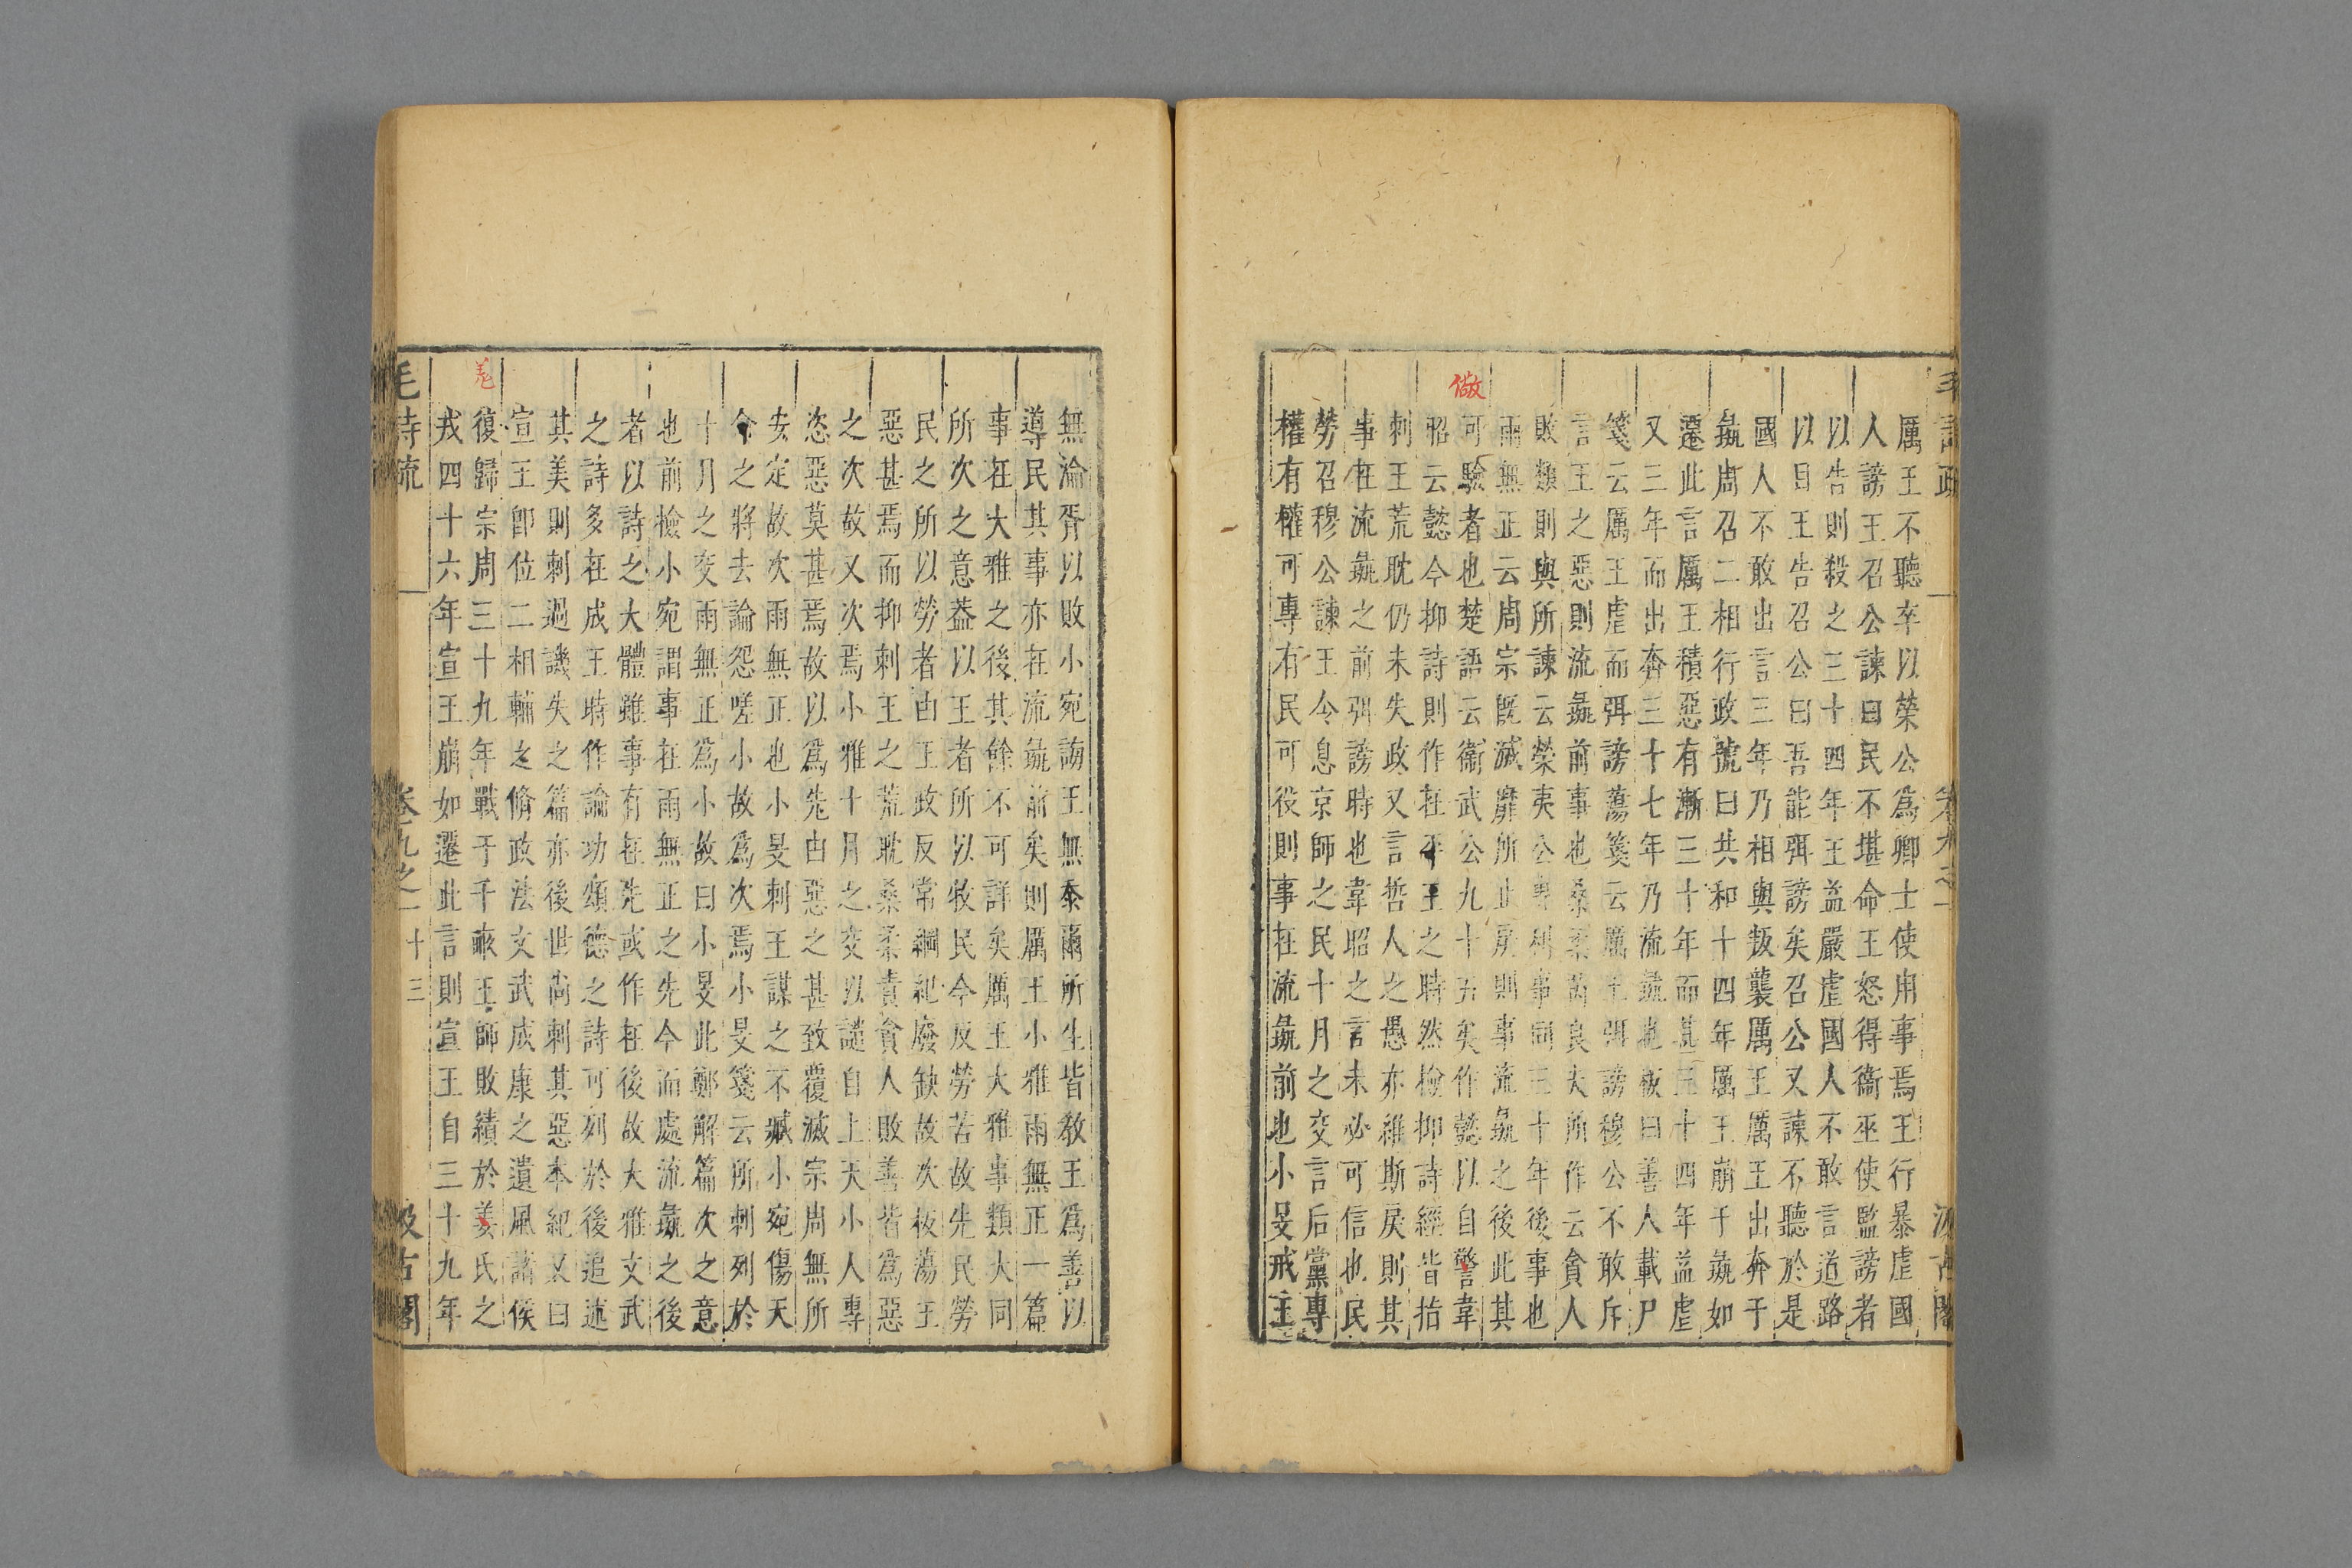 毛詩疏
卷九之一
汲古閣
厲王不聽卒以榮公爲卿士使用事焉王行暴虐國
人謗王召公諫曰民不堪命王怒得衞巫使監謗者
以告則殺之三十四年王益嚴虐國人不敢言道路
以目王告召公曰吾能弭謗矣召公又諫不聽於是
國人不敢出言三年乃相與叛襲厲王厲王出奔于
彘周召二相行政號曰共和十四年厲王崩于彘如
遷此言厲王積惡有漸三十年而甚三十四年益虐
又三年而出奔三十七年乃流彘也板曰善人載尸
箋云厲王虐而弭謗蕩箋云厲王弭謗穆公不敢斥
言王之惡則流彘前事也桑柔芮良夫所作云貪人
敗類則與所諫云榮夷公專利事同三十年後事也
雨無正云周宗旣滅靡所止戾則事流彘之後此其
可驗者也楚語云衞武公九十五矣作懿以自警韋
昭云懿今抑詩則作在平王之時然檢抑詩經皆指
刺王荒耽仍未失政又言哲人之愚亦維斯戾則其
事在流彘之前弭謗時也韋昭之言未必可信也民
勞召穆公諫王令息京師之民十月之交言后黨專
權有權可專有民可役則事在流彘前也小旻戒王
做
無淪胥以敗小宛誨王無忝爾所生皆敎王爲善以
導民其事亦在流彘前矣則厲王小雅雨無正一篇
事在大雅之後其餘不可詳矣厲王大雅事類大同
所次之意葢以王者所以牧民今反勞苦故先民勞
民之所以勞者由王政反常綱紀廢缺故次板蕩王
惡甚焉而抑刺王之荒耽桑柔責貪人敗善皆爲惡
之次故又次焉小雅十月之交以譴自上天小人專
恣惡莫甚焉故以爲先由惡之甚致覆滅宗周無所
安定故次雨無正也小旻刺王謀之不臧小宛傷天
命之將去論怨嗟小故爲次焉小旻箋云所刺列於
十月之交雨無正爲小故曰小旻此鄭解篇次之意
也前檢小宛謂事在雨無正之先今而處流彘之後
者以詩之大體雖事有在先或作在後故大雅文武
之詩多在成王時作論功頌德之詩可列於後追述
其美則刺過譏失之篇亦後世尚刺其惡本紀又曰
宣王卽位二相輔之脩政法文武成康之遺風諸侯
復歸宗周三十九年戰于千畝王師敗績於姜氏之
戎四十六年宣王崩如遷此言則宣王自三十九年
羗
毛詩疏
卷九之一
十三
汲古閣